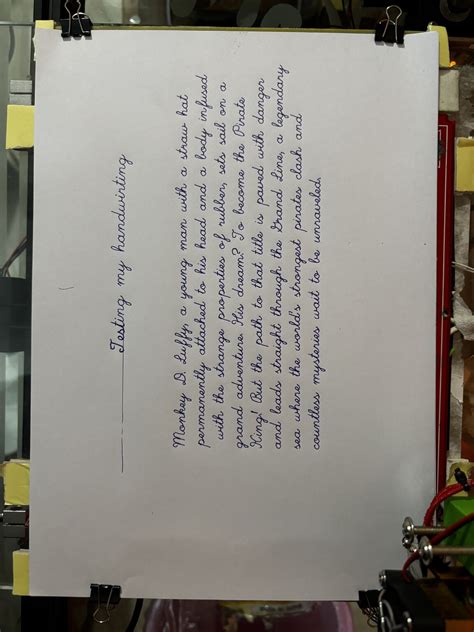 Testing my handwriting
Monkey D. Luffy, a young man with a straw hat
permanently attached to his head and a body infused
with the strange properties of rubber, sets sail on a
grand adventure. His dream? To become the Pirate
King! But the path to that title is paved with danger
and leads straight through the Grand Line, a legendary
sea where the world's strongest pirates clash and
countless mysteries wait to be unraveled.